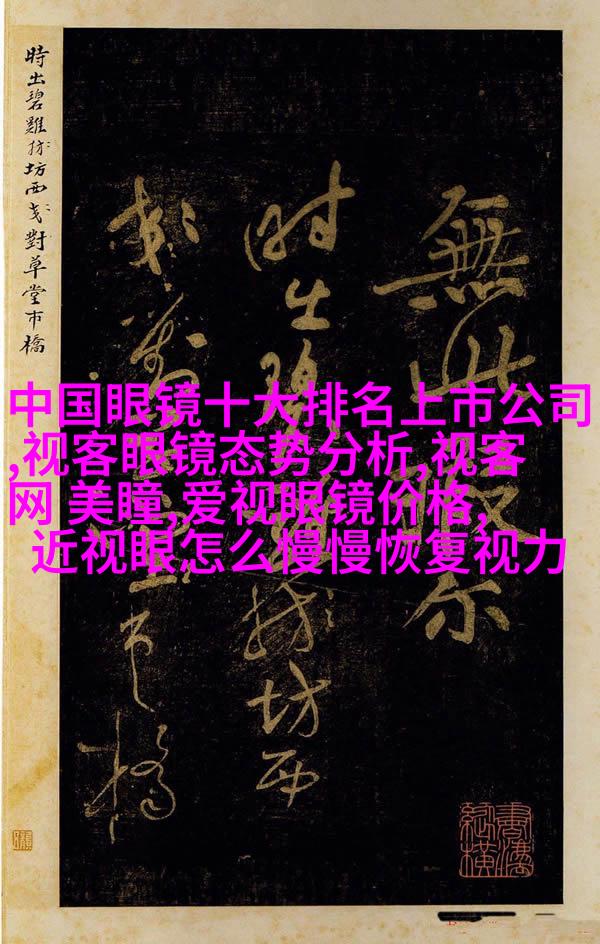 時出碧雞坊西對草堂市橋
無此
時出碧坊西
市橋
中国眼镜十大排名上市公司
,视客眼镜态势分析,视客
网 美瞳,爱视眼镜价格,
近视眼怎么慢慢恢复视力